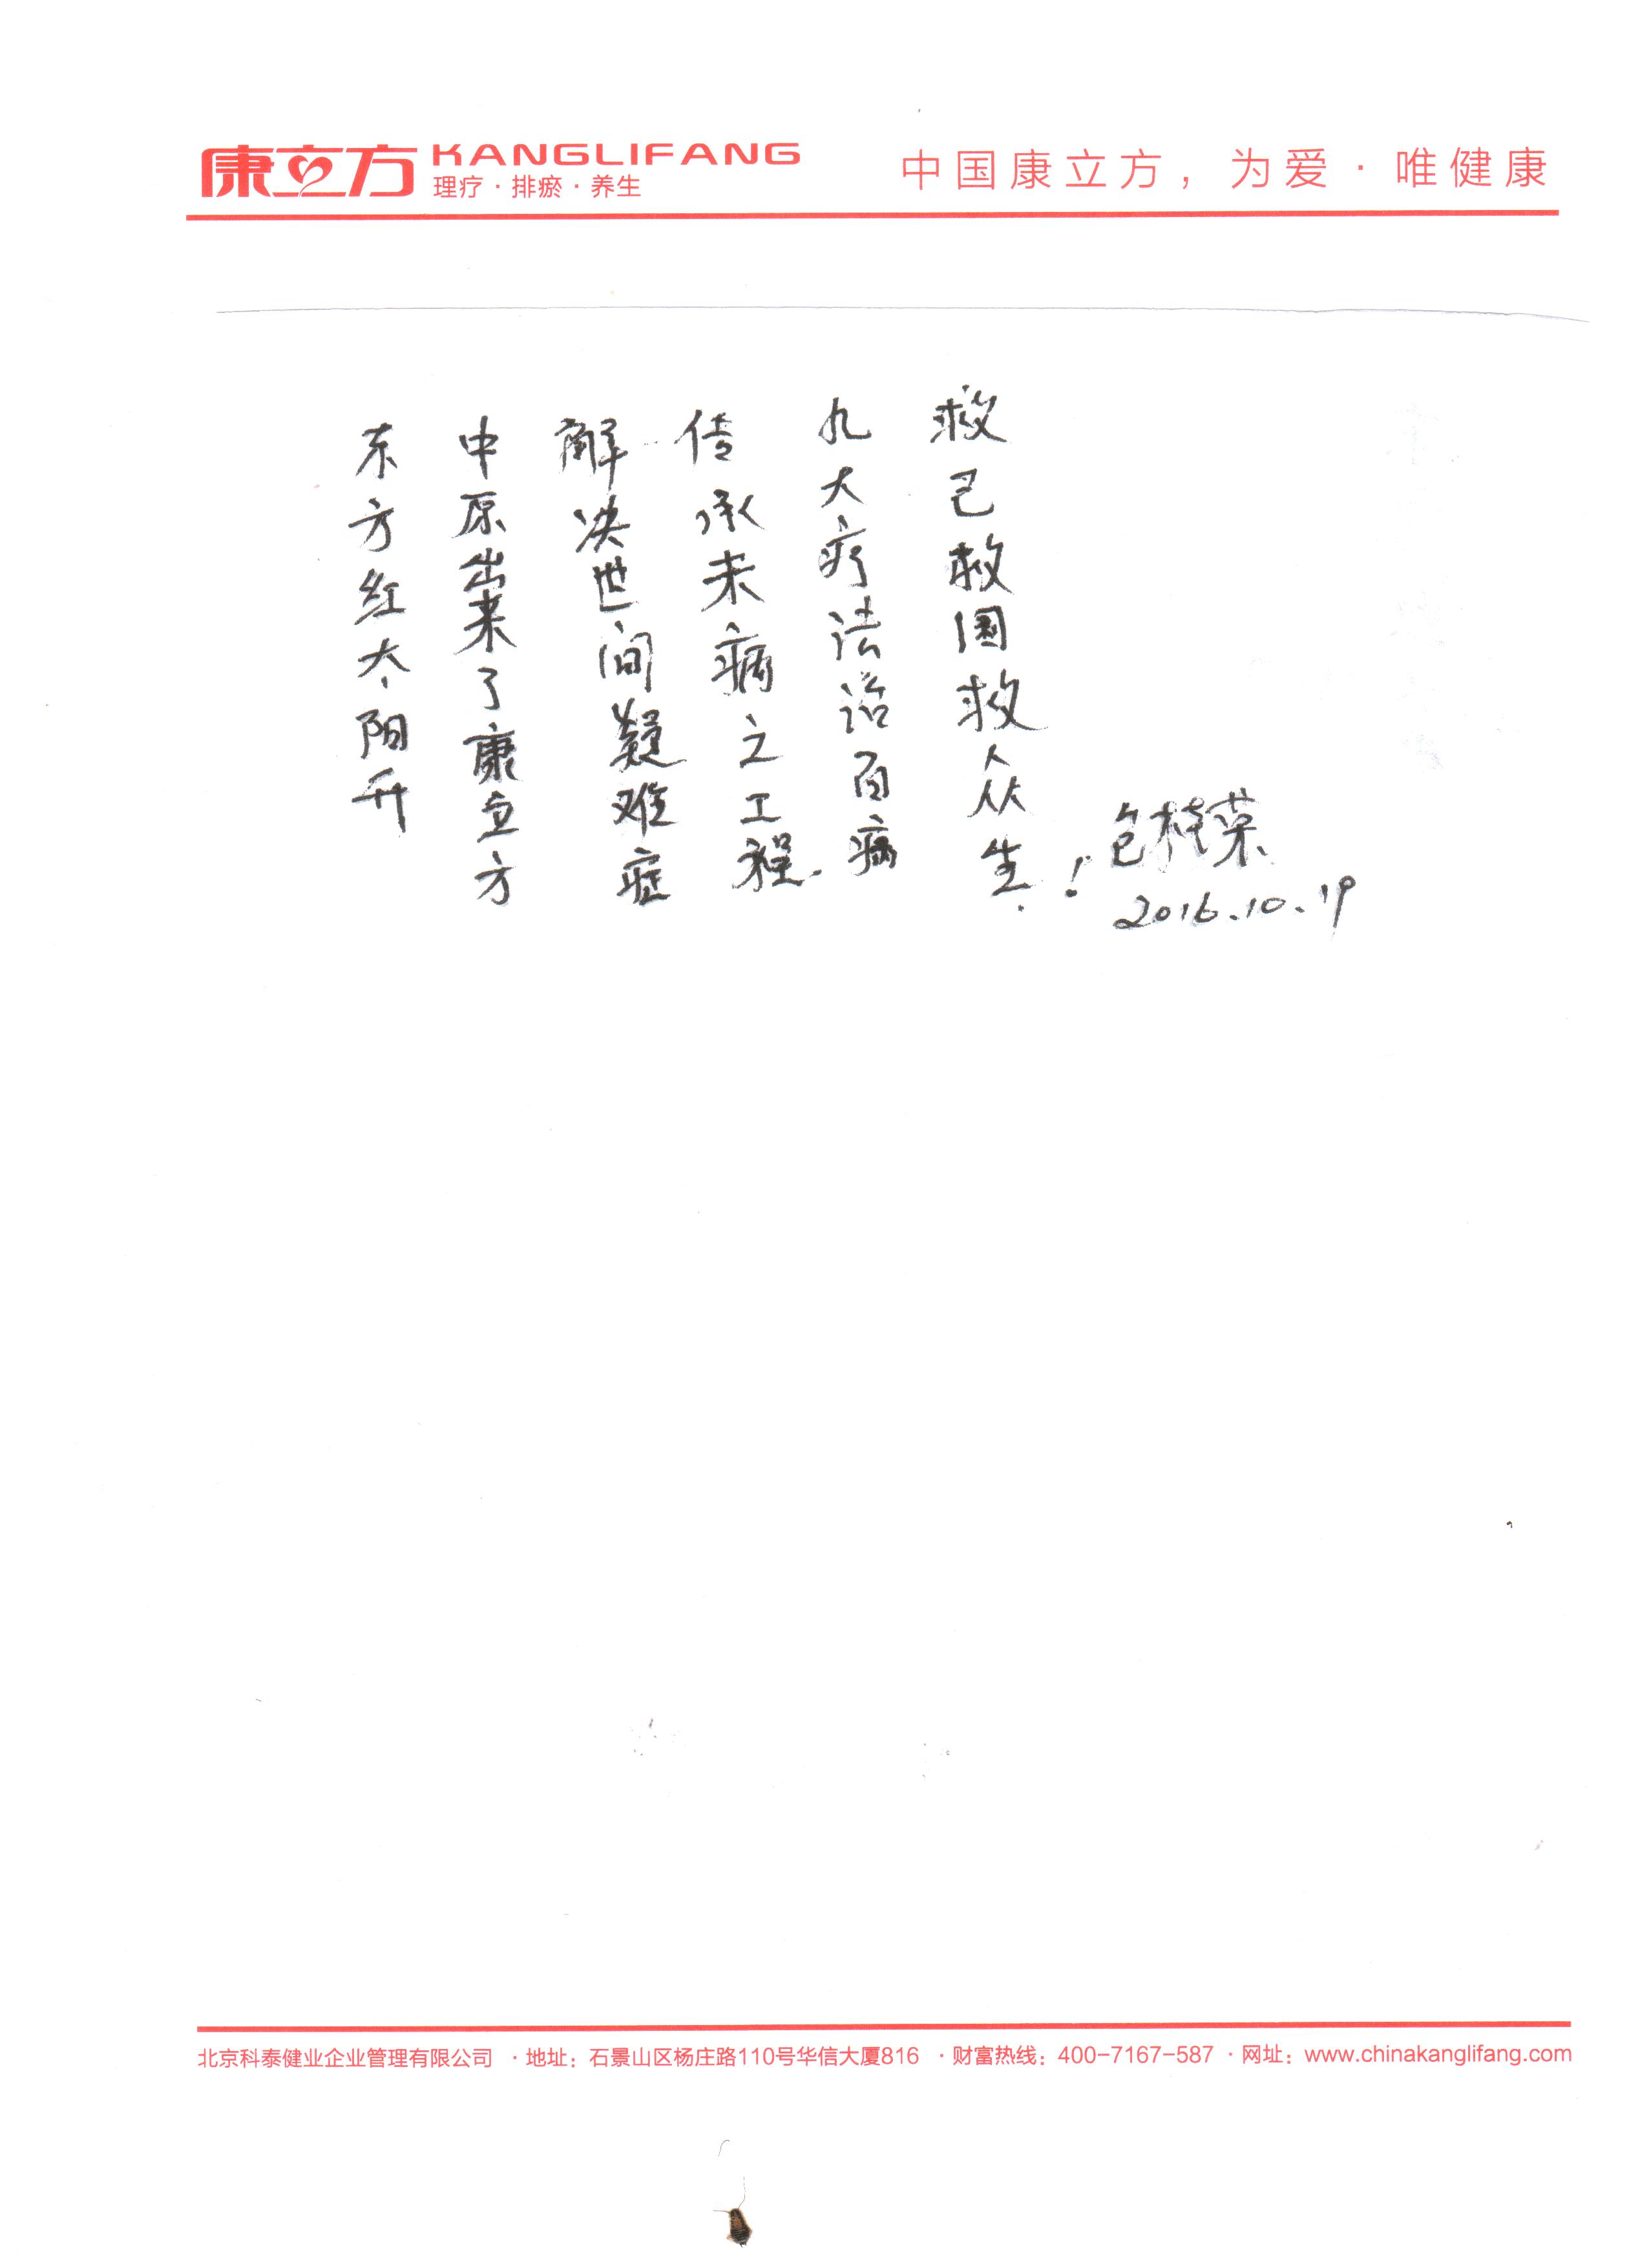 康立方 KANGLIFANG
理疗·排瘀·养生
中国康立方，为爱·唯健康
东方红太阳升
中原出来了康立方
解决世间疑难症
传承未病之工程.
九大疗法治百病
救己救国救众生！
包桂荣
2016.10.19
北京科泰健业企业管理有限公司 ·地址：石景山区杨庄路110号华信大厦816 ·财富热线：400-7167-587 ·网址：www.chinakanglifang.com